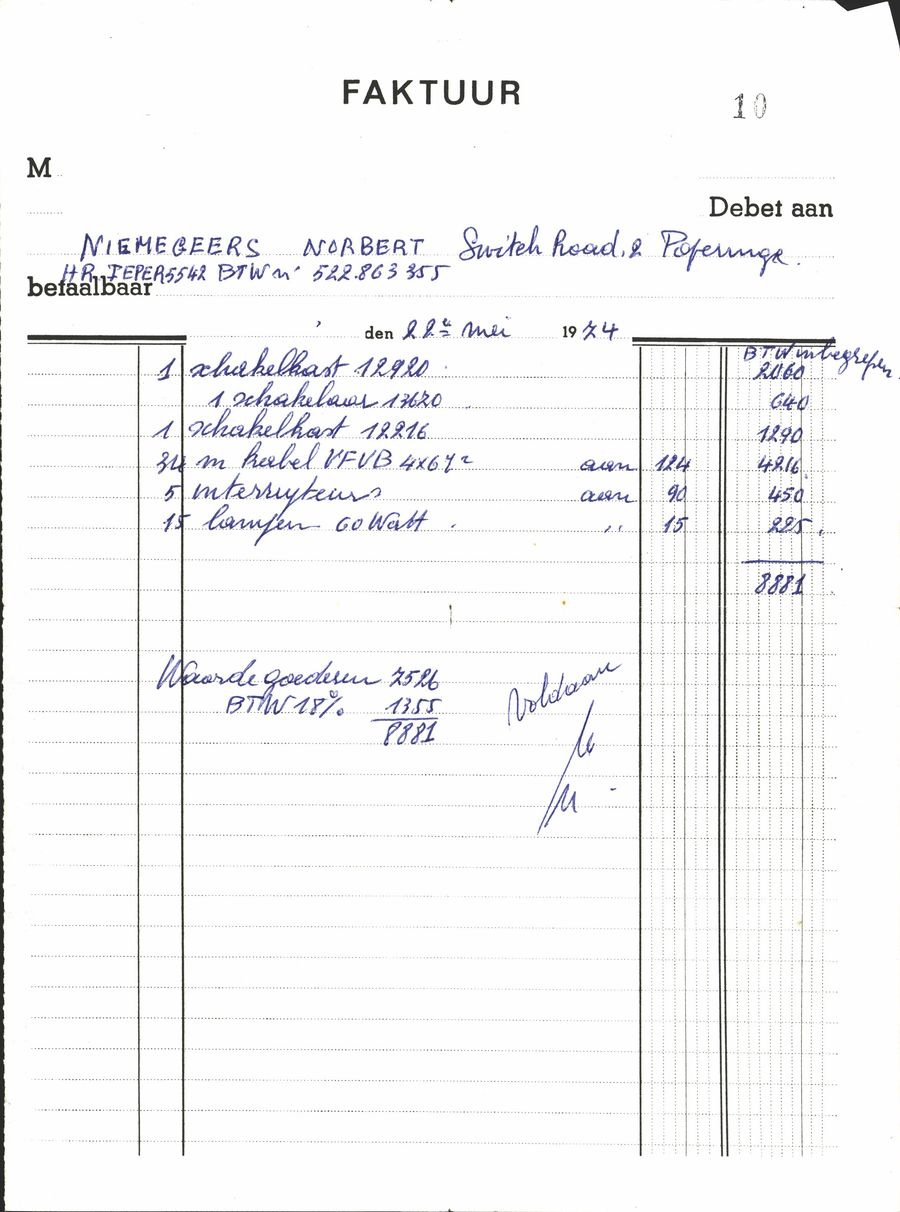 FAKTUUR
10
M
Debet aan
NIEMEGEERS NORBERT Switch Road, 2 Poperinge.
HR. IEPER 5542 BTW n° 522.863 355
betaalbaar
den 22e mei 1974
BTW inbegrepen
1 schakelkast 12920 2060
1 schakelaar 13620 640
1 schakelkast 12216 1290
34 m kabel VFVB 4x6 aan 124 4216
5 interrupteurs aan 90 450
15 lampen 60 Watt " 15 225
8881
Waarde goederen 7526
BTW 18% 1355
8881
Voldaan